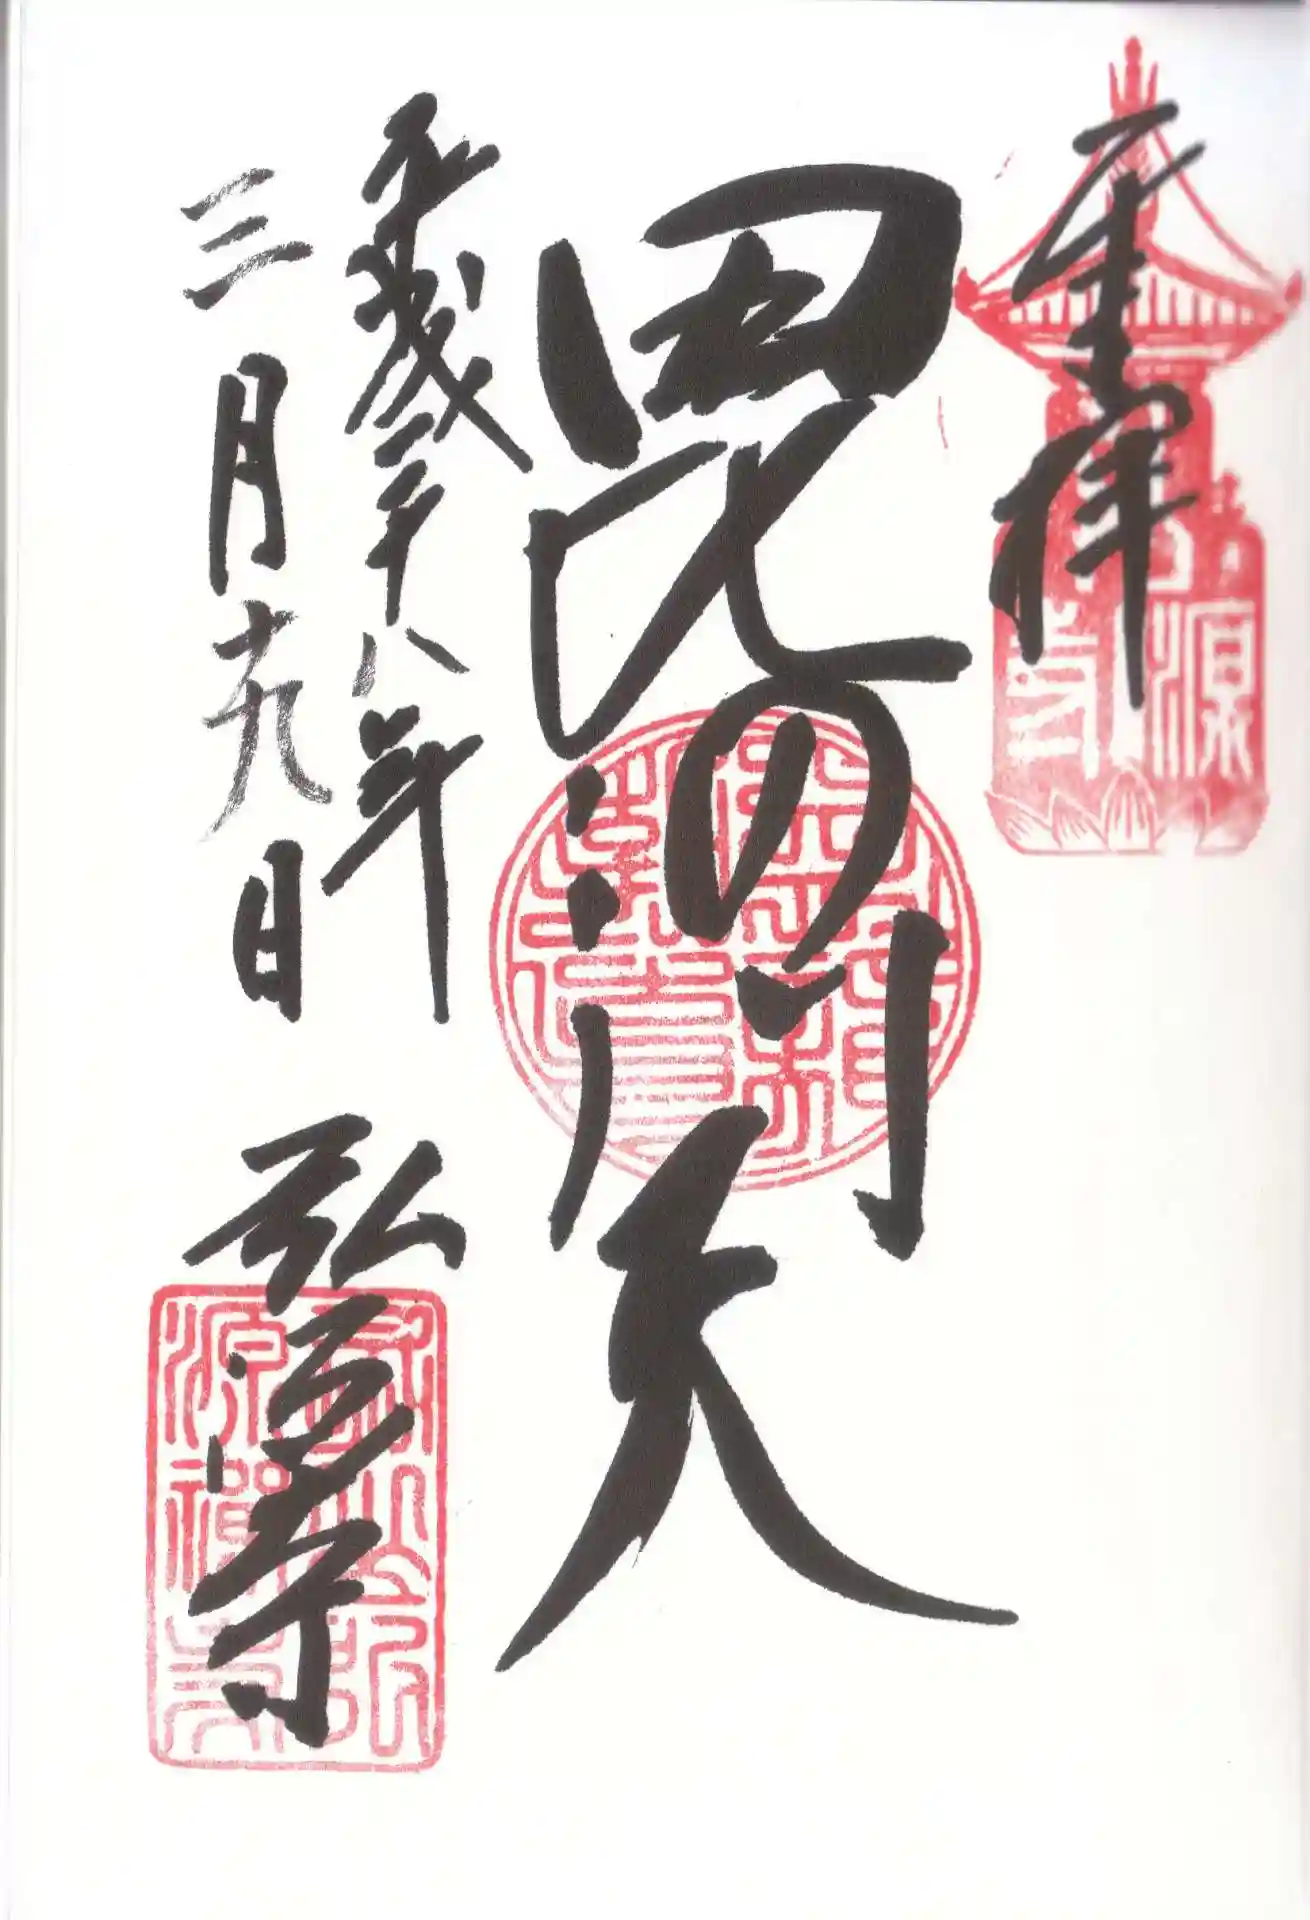 奉拝
毘沙門天
平成二十八年
三月十九日 弘源寺